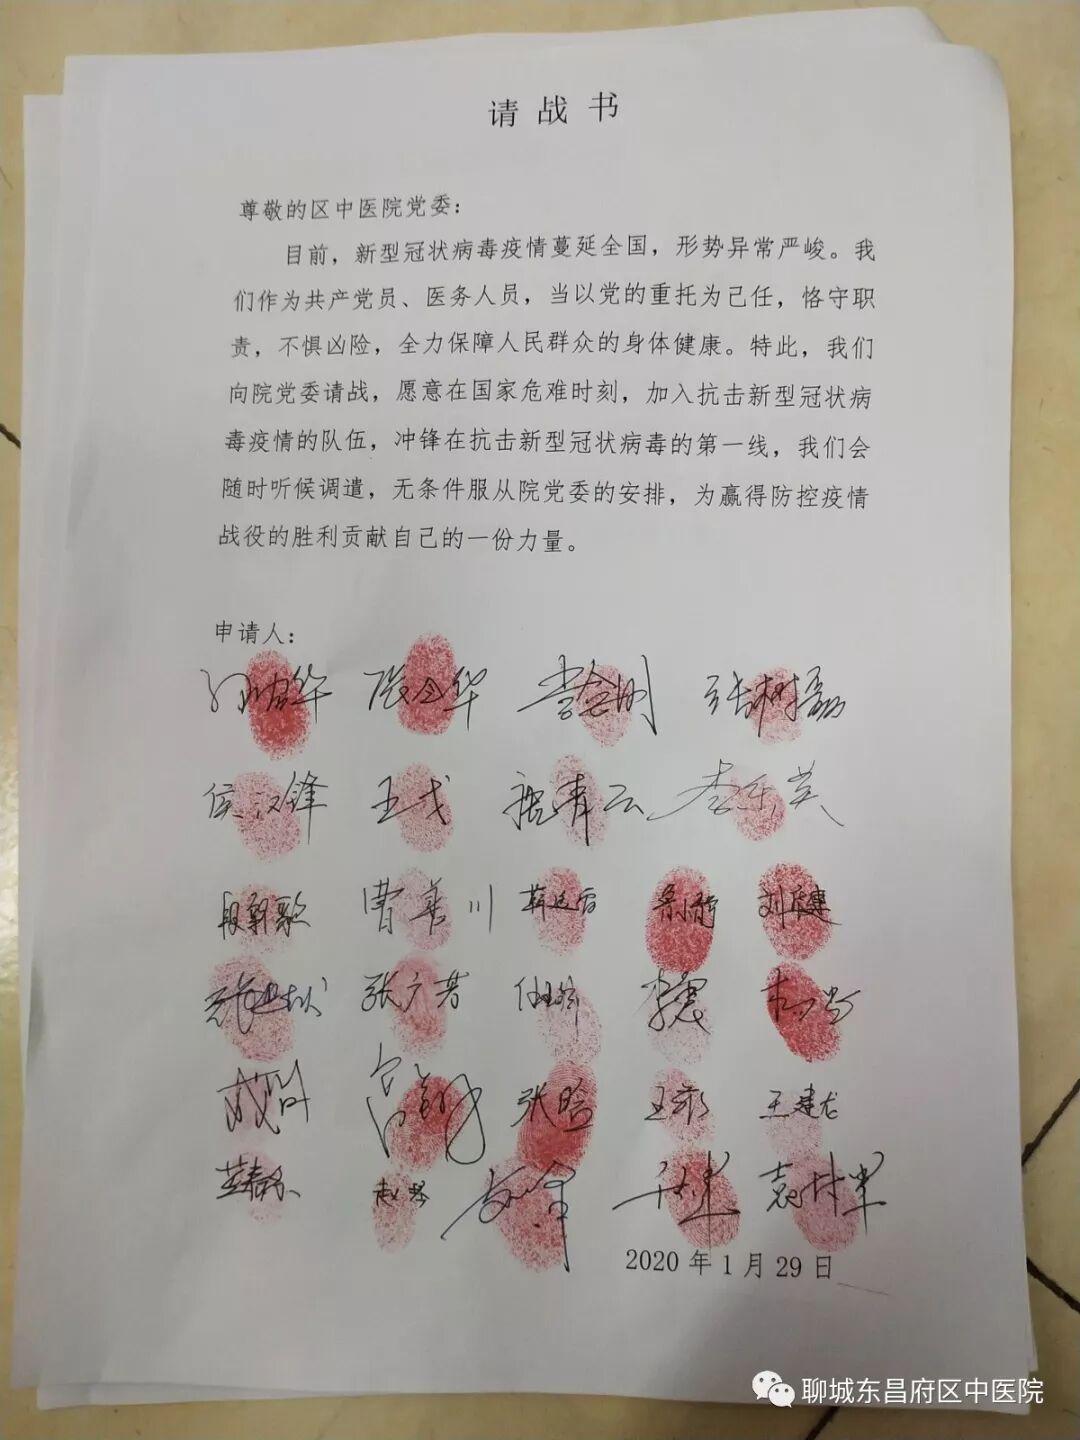 请战书
尊敬的区中医院党委：
目前，新型冠状病毒疫情蔓延全国，形势异常严峻。我
们作为共产党员、医务人员，当以党的重托为己任，恪守职
责，不惧凶险，全力保障人民群众的身体健康。特此，我们
向院党委请战，愿意在国家危难时刻，加入抗击新型冠状病
毒疫情的队伍，冲锋在抗击新型冠状病毒的第一线，我们会
随时听候调遣，无条件服从院党委的安排，为赢得防控疫情
战役的胜利贡献自己的一份力量。
申请人：
张树磊
侯汉锋
曹善川
张广芳
张晗 王建龙
2020年1月29日
聊城东昌府区中医院